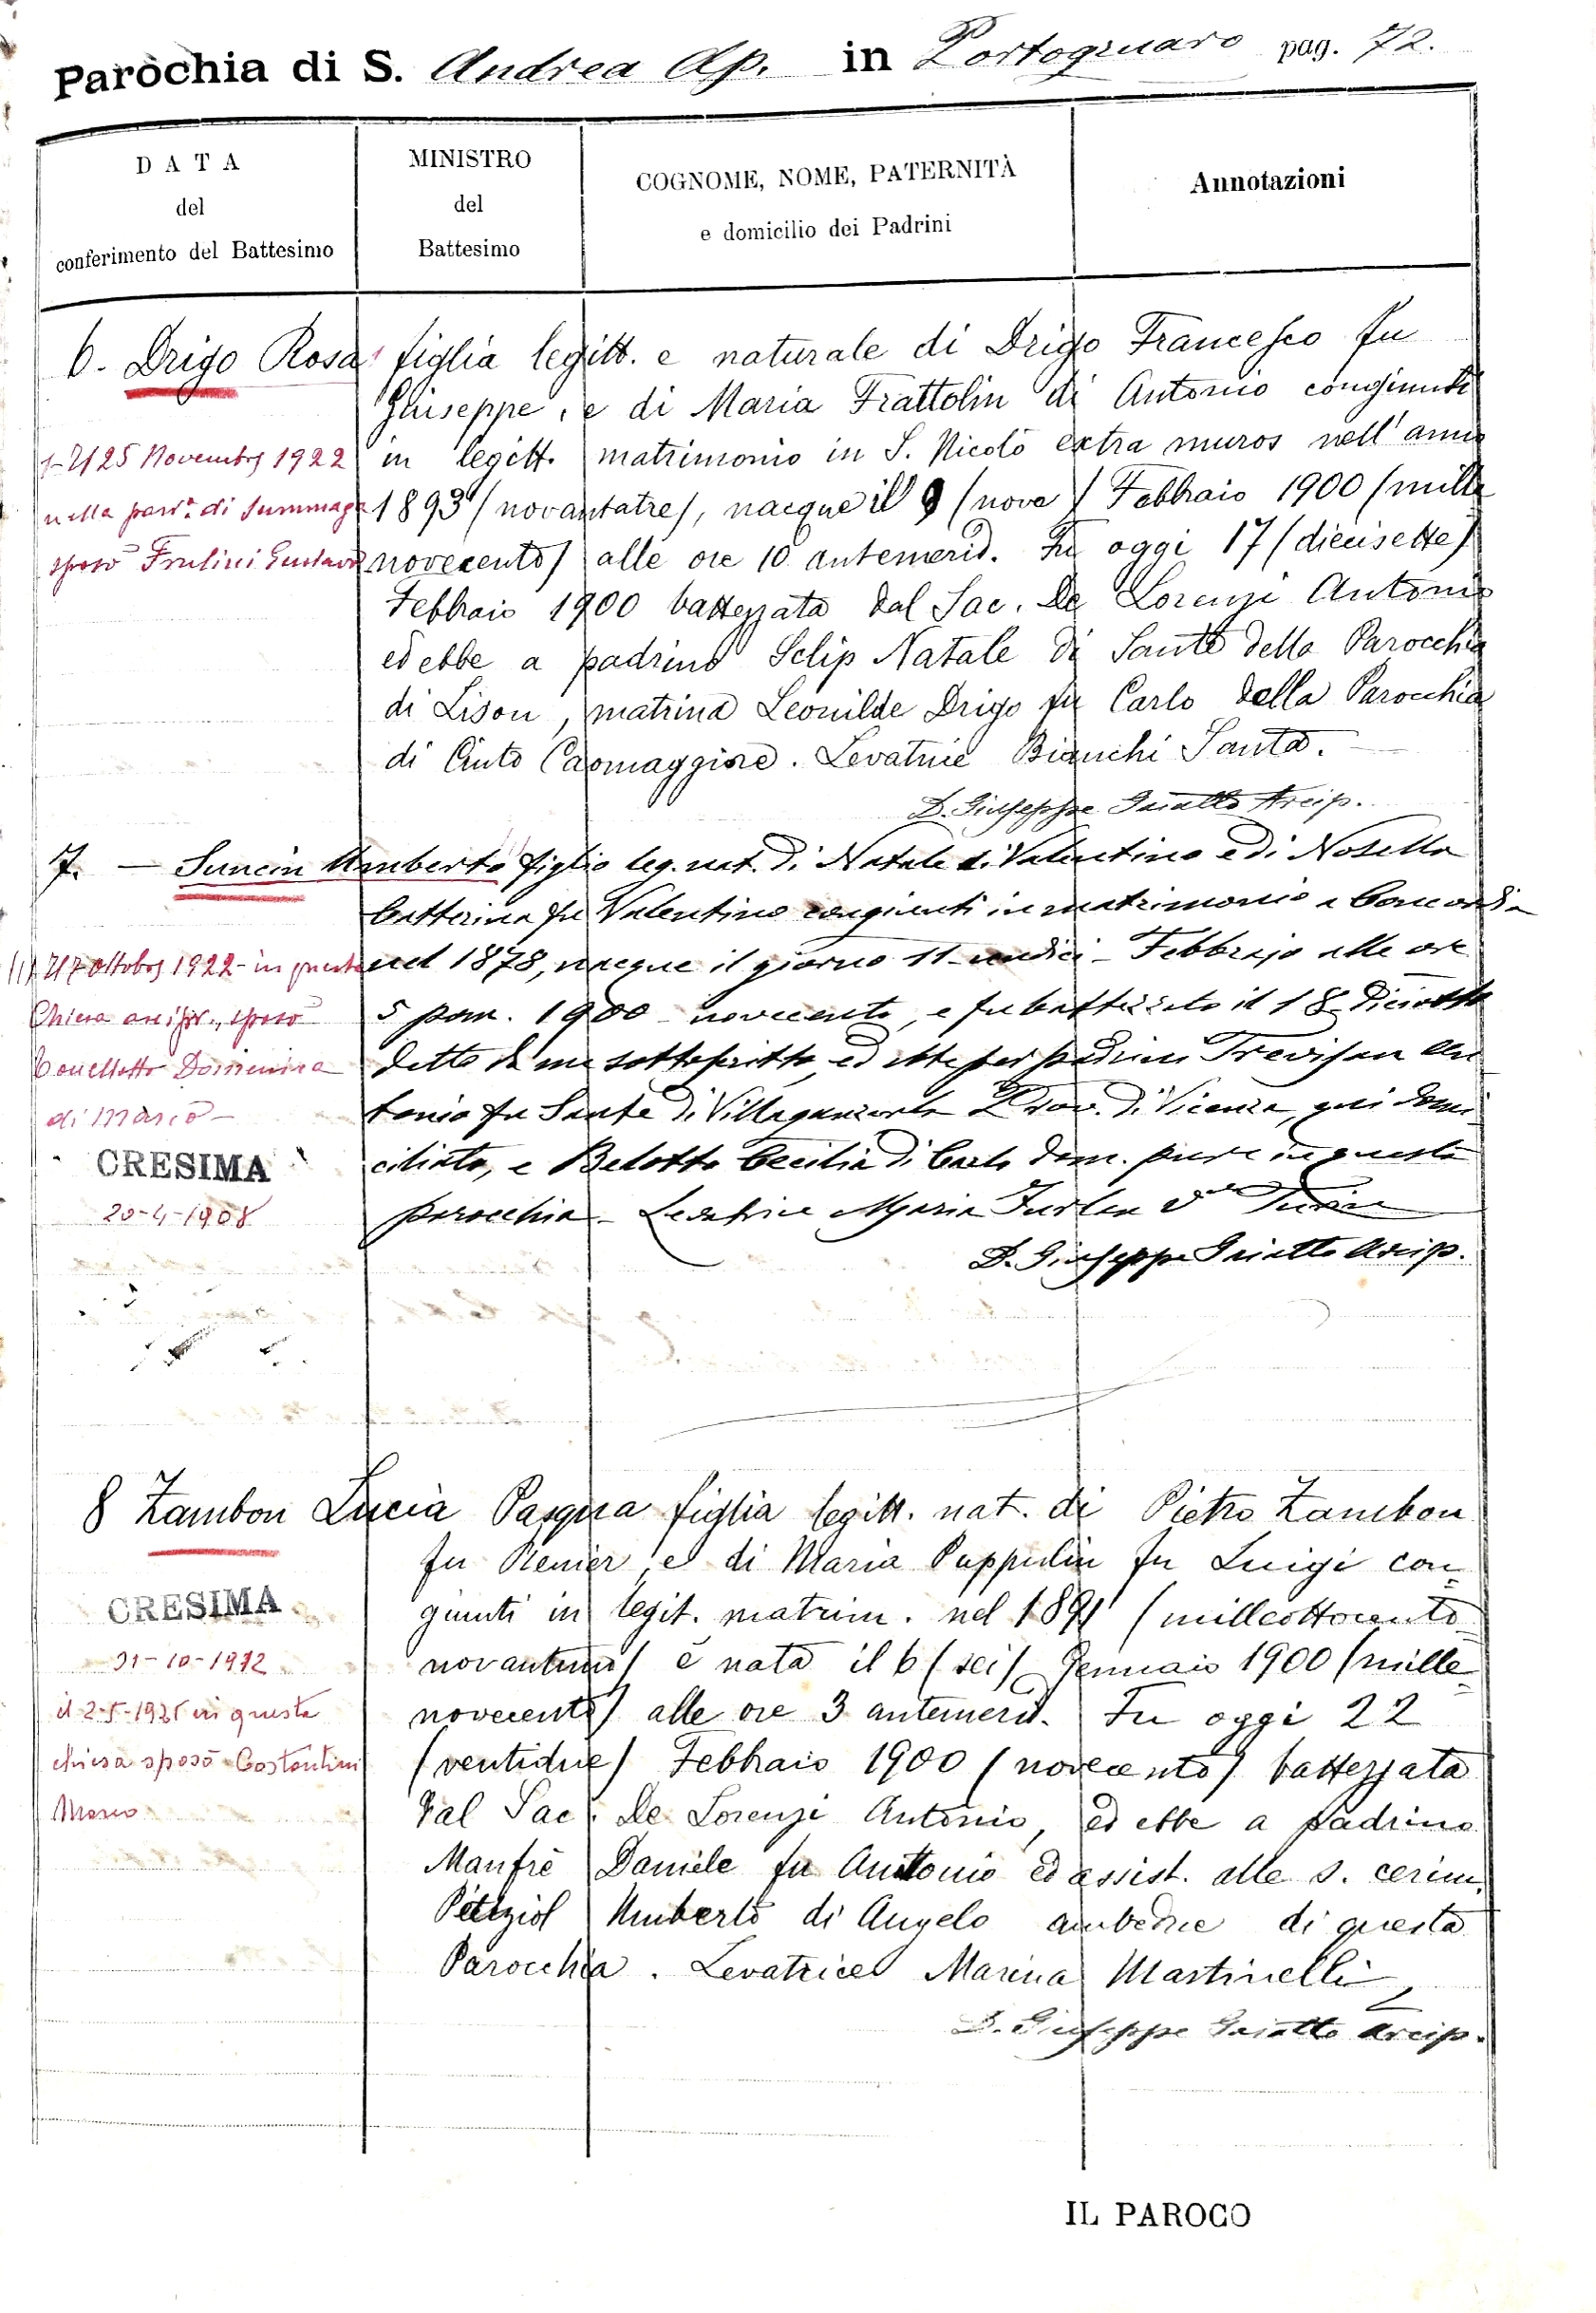 Parochia di S. Andrea Ap. in Portogruaro pag. 72.
DATA
del
conferimento del Battesimo
MINISTRO
del
Battesimo
COGNOME, NOME, PATERNITÀ
e domicilio dei Padrini
Annotazioni
6. Drigo Rosa figlia legitt. e naturale di Drigo Francesco fu
Giuseppe, e di Maria Frattolin di Antonio congiunti
in legitt. matrimonio in S. Nicolò extra muros nell'anno
1893 (novantatre), nacque il 9 (nove) Febbraio 1900 (mille
novecento) alle ore 10 antemerid. Fu oggi 17 (diecisette)
Febbraio 1900 battezzata dal Sac. De Lorenzi Antonio
ed ebbe a padrino Sclip Natale di Sante della Parocchia
di Lison, matrina Leonilde Drigo fu Carlo della Parocchia
di Cinto Caomaggiore. Levatrice Bianchi Santa.
D. Giuseppe Arcip.
25 Novembre 1922
nella parr. di Summaga
sposò Gustavo
7. — Umberto figlio leg. nat. di Natale di Valentino e di Nosella
Catterina fu Valentino congiunti in matrimonio a Concordia
nel 1878, nacque il giorno 11 undici Febbrajo alle ore
5 pom. 1900 novecento, e fu battezzato il 18 Diciotto
detto da me sottoscritto, ed ebbe per padrini Trevisan An
tonio fu Sante di Villaganzerla Prov. di Vicenza, qui domi
ciliato, e Belotto Cecilia di Carlo dom. pure in questa
parocchia - Levatrice Maria Furlan
D. Giuseppe Arcip.
7 ottobre 1922 - in questa
Chiesa arcipr., sposò
Domenica
di Marco -
CRESIMA
20-4-1908
8 Zambon Lucia Pasqua figlia legitt. nat. di Pietro Zambon
fu Renier, e di Maria Puppulin fu Luigi con-
giunti in legit. matrim. nel 1891 (milleottocento
novantuno) è nata il 6 (sei) Gennaio 1900 (mille
novecento) alle ore 3 antemerid. Fu oggi 22
(ventidue) Febbraio 1900 (novecento) battezzata
dal Sac. De Lorenzi Antonio, ed ebbe a padrino
Manfrè Daniele fu Antonio ed assist. alle s. cerim.
Pitteziol Umberto di Angelo ambedue di questa
Parocchia. Levatrice Marina Martinelli
D. Giuseppe Arcip.
CRESIMA
in questa
chiesa sposò Costantini
Marco
IL PAROCO